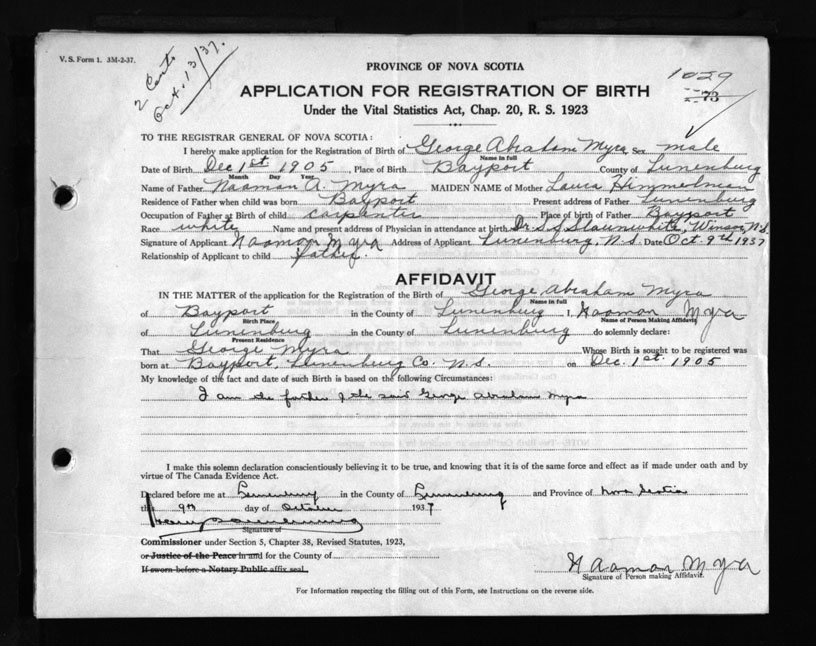 V. S. Form 1. 3M-2-37.
2 Certs
Oct. 13/37.
PROVINCE OF NOVA SCOTIA
1029
73
APPLICATION FOR REGISTRATION OF BIRTH
Under the Vital Statistics Act, Chap. 20, R. S. 1923
TO THE REGISTRAR GENERAL OF NOVA SCOTIA:
I hereby make application for the Registration of Birth of George Abraham Myra Sex male
Name in full
Date of Birth Dec 1st 1905, Place of Birth Bayport County of Lunenburg
Month Day Year
Name of Father Naaman A. Myra MAIDEN NAME of Mother Laura Himmelman
Residence of Father when child was born Bayport Present address of Father Lunenburg
Occupation of Father at Birth of child carpenter Place of birth of Father Bayport
Race white Name and present address of Physician in attendance at birth Dr. Slaunwhite, N.S.
Signature of Applicant Naaman Myra Address of Applicant Lunenburg, N.S. Date Oct. 9th 1937
Relationship of Applicant to child Father.
AFFIDAVIT
IN THE MATTER of the application for the Registration of the Birth of George Abraham Myra
Name in full
of Bayport in the County of Lunenburg I, Naaman Myra
Birth Place Name of Person Making Affidavit
of Lunenburg in the County of Lunenburg do solemnly declare:
Present Residence
That George Myra Whose Birth is sought to be registered was
born at Bayport, Lunenburg Co. N.S. on Dec. 1st. 1905
My knowledge of the fact and date of such Birth is based on the following Circumstances:
I am the father of the said George Abraham Myra
I make this solemn declaration conscientiously believing it to be true, and knowing that it is of the same force and effect as if made under oath and by
virtue of The Canada Evidence Act.
Declared before me at Lunenburg in the County of Lunenburg and Province of Nova Scotia
this 9th day of October 1937
Signature of
Commissioner under Section 5, Chapter 38, Revised Statutes, 1923,
or Justice of the Peace in and for the County of
If sworn before a Notary Public affix seal.
Naaman Myra
Signature of Person making Affidavit.
For Information respecting the filling out of this Form, see Instructions on the reverse side.